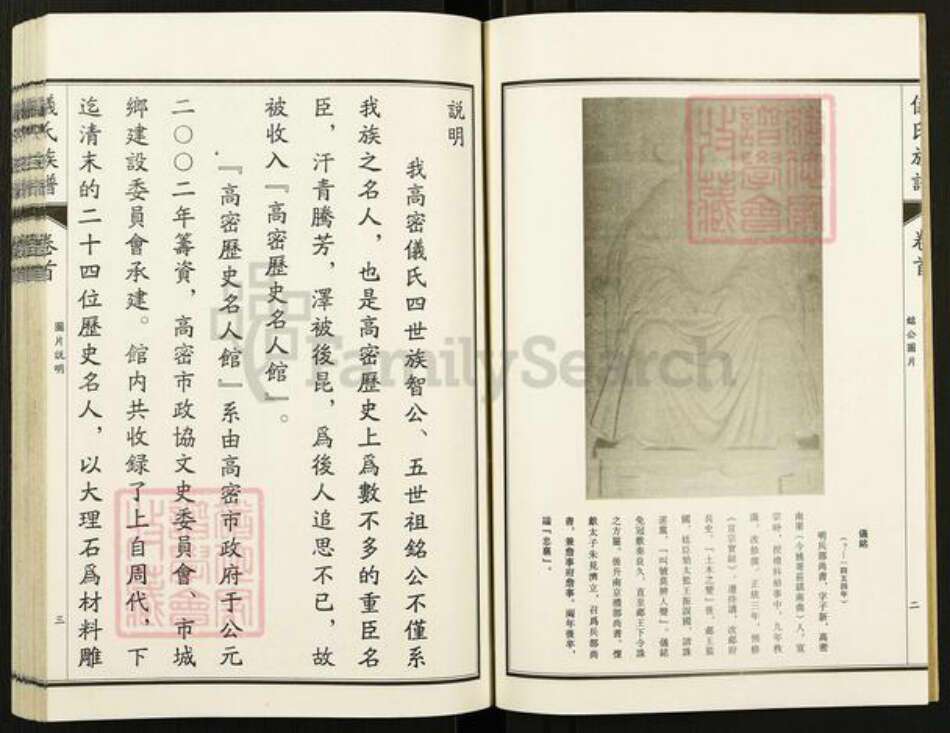 儀氏族譜
卷首
銘公圖片
二
儀銘
(?—一四五四年)
明兵部尚書,字子新,高密
宗時,授禮科給事中,九年秩
滿,改修撰。正統三年,預修
《宣宗實錄》,遷侍講,改郕府
長史。「土木之變」後,郕王監
國,廷臣劾太監王振誤國,請誅
免冠歡奏良久,直至郕王下令誅
之方罷。後升南京禮部尚書。懷
獻太子朱見濟立,召爲兵部尚
書,兼詹事府詹事。兩年後卒,
謚「忠襄」。
說明
我高密儀氏四世族智公、五世祖銘公不僅系
我族之名人,也是高密歷史上爲數不多的重臣名
臣,汗青騰芳,澤被後昆,爲後人追思不已,故
被收入『高密歷史名人館』。
『高密歷史名人館』系由高密市政府于公元
二〇〇二年籌資,高密市政協文史委員會、市城
鄉建設委員會承建。館內共收録了上自周代,下
迄清末的二十四位歷史名人,以大理石爲材料雕
儀氏族譜
卷首
圖片説明
三
FamilySearch